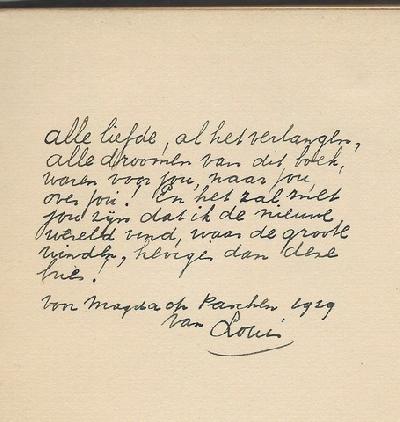 alle liefde, al het verlangen,
alle droomen van dit boek,
waren voor jou, naar jou,
over jou! En het zal met
jou zijn dat ik de nieuwe
wereld vind, waar de groote
winden, heviger dan deze
bries!
Voor Magda op Paschen 1929
van Louis